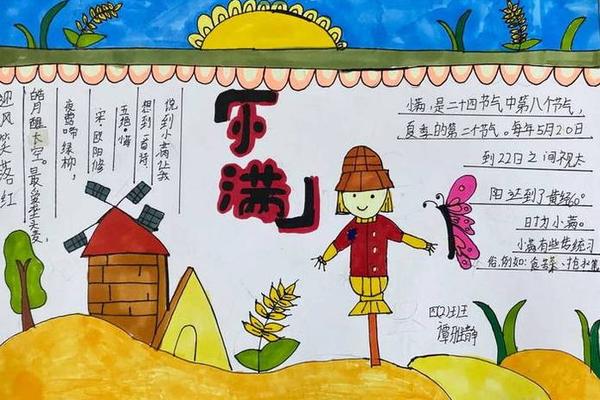 「小
满」
说到小满让我
想到一首诗
五绝·
宋·欧阳修
夜莺啼绿柳,
皓月醒大空。最爱垄头麦,
迎风笑落红
小满,是二十四节气中第八个节气,
夏季的第二个节气。每年5月20日
到22日之间视太
阳达到了黄经60°
时为小满。
小满有些传统习
俗,例如:食菜、抢水
四(2)班
谭雅静